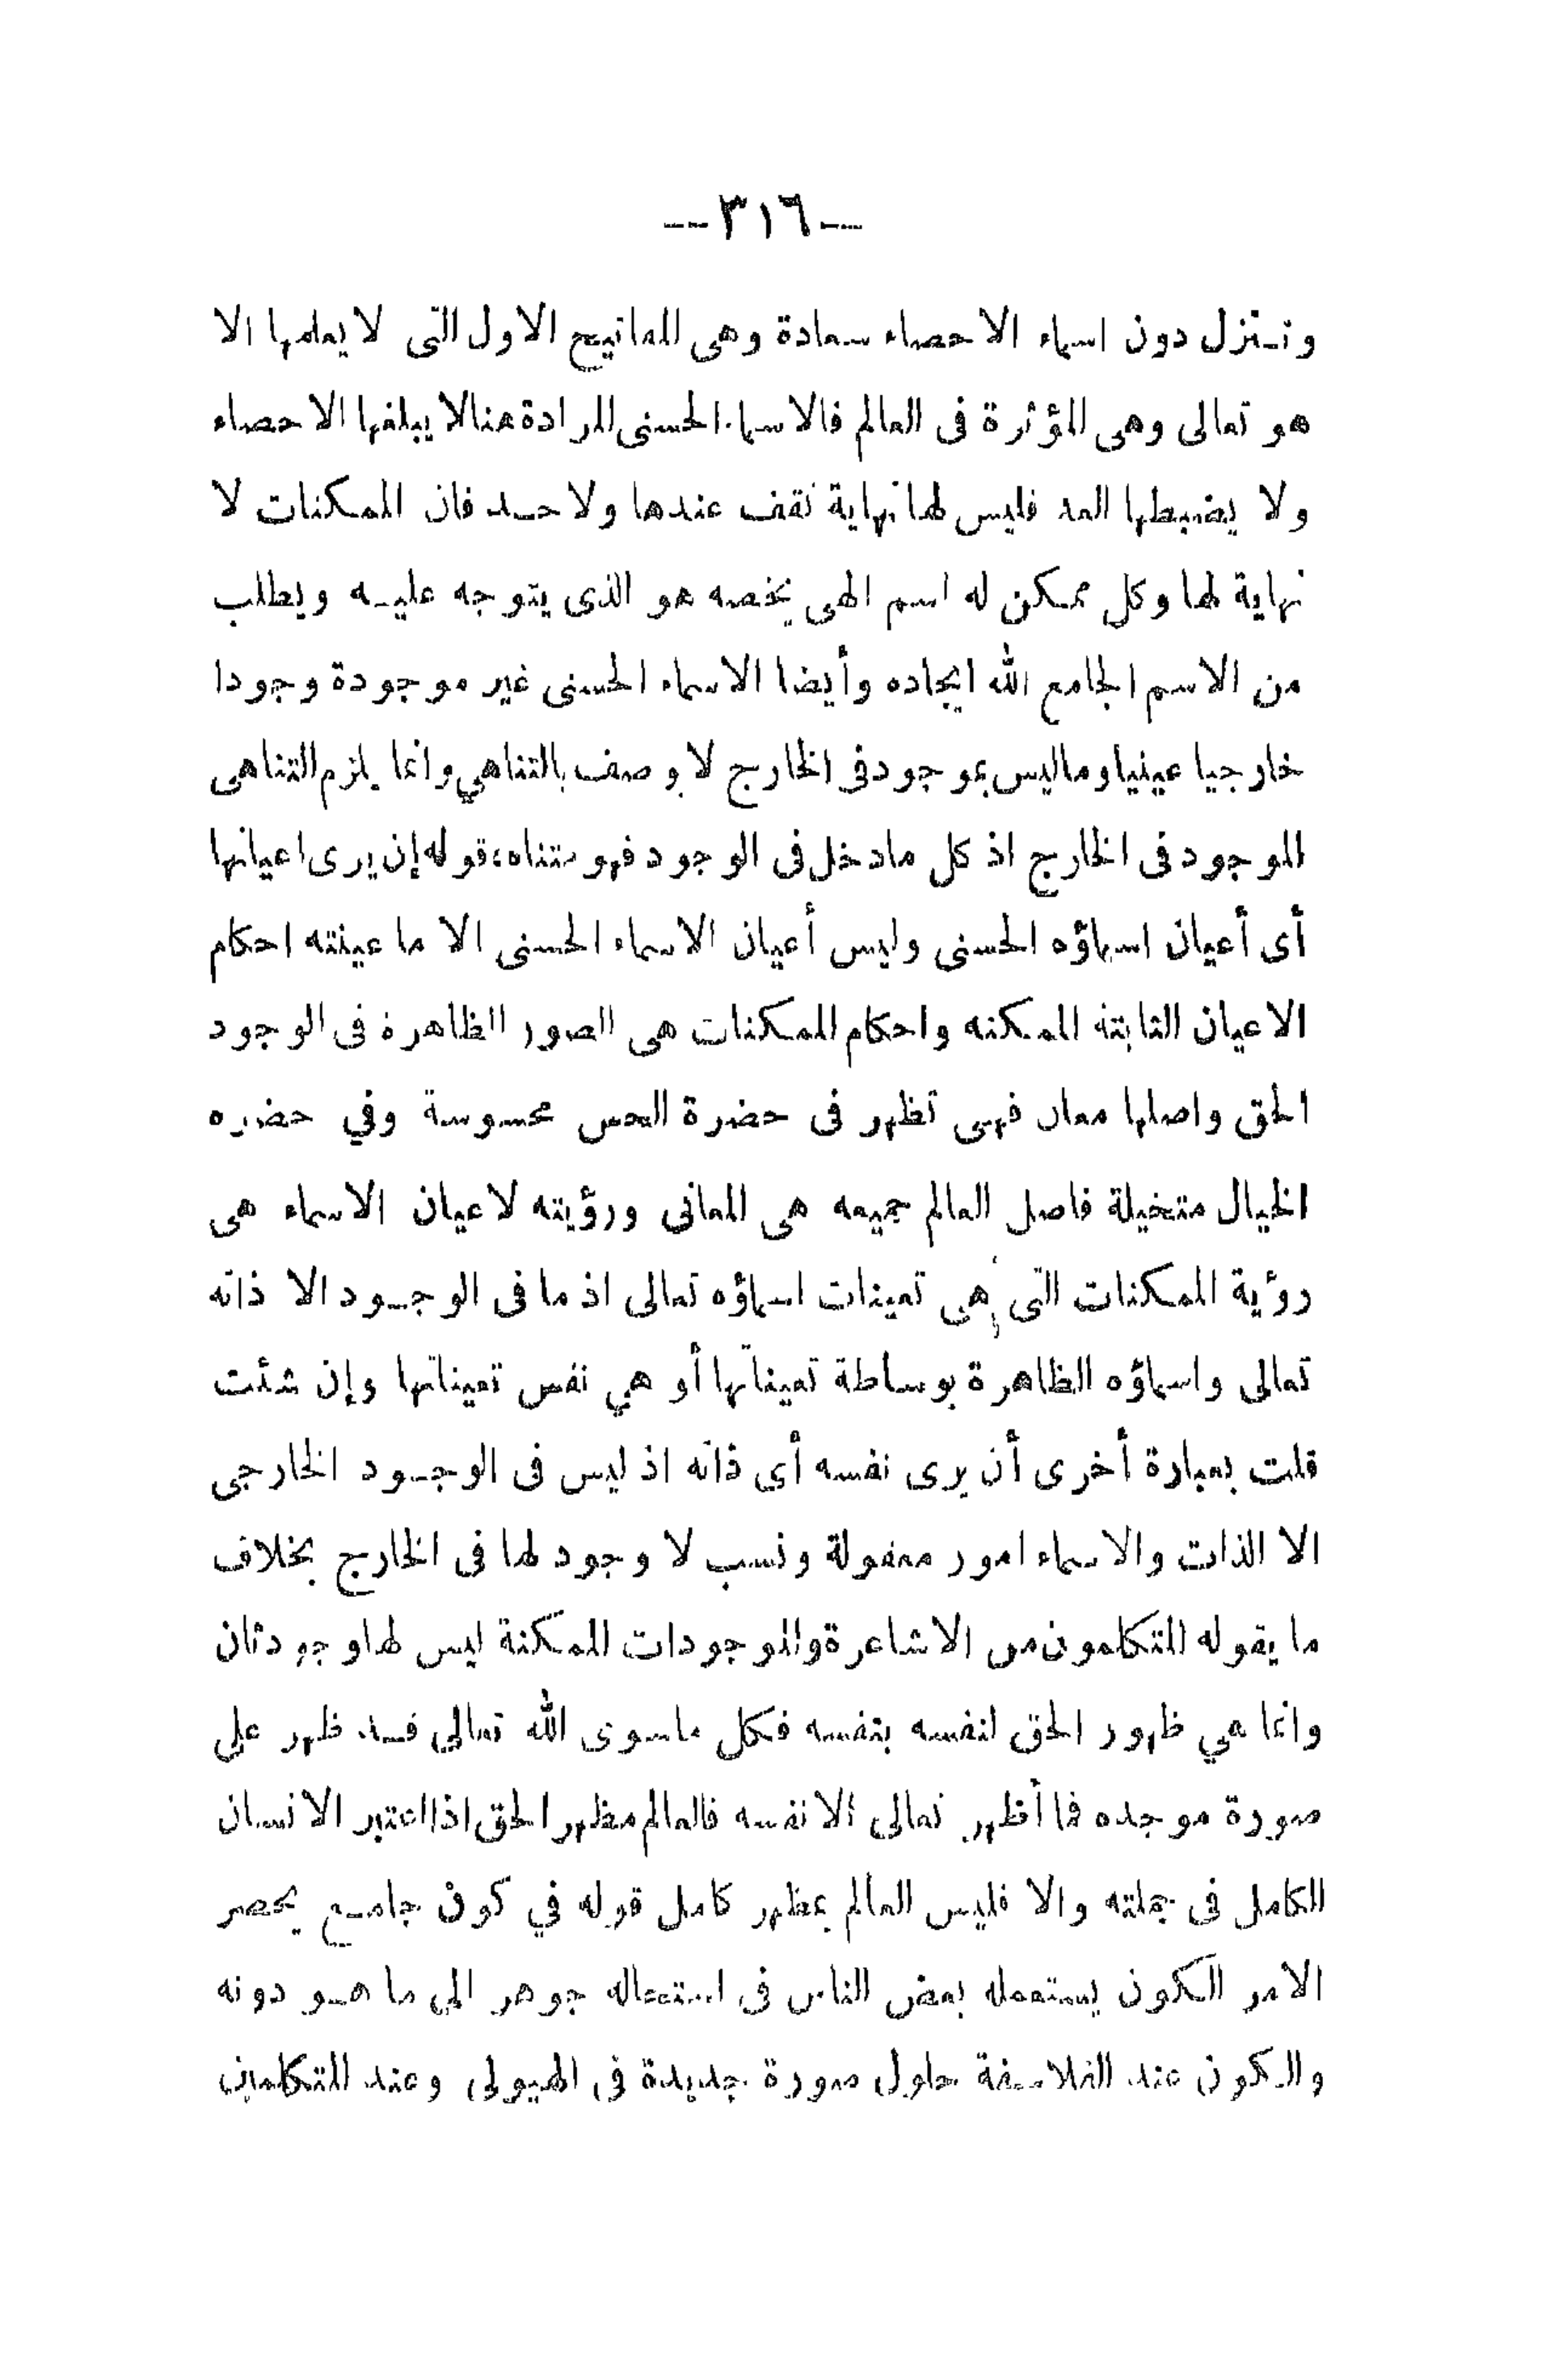 --٣١٦--
وتتنزل دون اسماء الاحصاء سعادة وهى المفاتيح الاول التى لا يعلمها الا
هو تعالى وهى المؤثرة فى العالم فالاسماء الحسنى المرادة هنا لا يبلغها الاحصاء
ولا يضبطها العد فليس لها نهاية تقف عندها ولا حد فان الممكنات لا
نهاية لها وكل ممكن له اسم الهى يخصه هو الذى يتوجه عليه ويطلب
من الاسم الجامع الله ايجاده وأيضا الاسماء الحسنى غير موجودة وجودا
خارجيا عينيا وما ليس بموجود فى الخارج لا يوصف بالتناهي وانما يلزم التناهى
الموجود فى الخارج اذ كل ما دخل فى الوجود فهو متناه، قوله إن يرى اعيانها
أى أعيان اسماؤه الحسنى وليس أعيان الاسماء الحسنى الا ما عينته احكام
الاعيان الثابته الممكنه واحكام الممكنات هى الصور الظاهرة فى الوجود
الحق واصلها معان فهى تظهر فى حضرة الحس محسوسة وفي حضره
الخيال متخيلة فاصل العالم جميعه هى المعانى ورؤيته لاعيان الاسماء هى
رؤية الممكنات التى هى تعينات اسماؤه تعالى اذ ما فى الوجود الا ذاته
تعالى واسماؤه الظاهرة بوساطة تعيناتها أو هي نفس تعيناتها وإن شئت
قلت بعبارة أخرى أن يرى نفسه أي ذاته اذ ليس فى الوجود الخارجى
الا الذات والاسماء امور معقولة ونسب لا وجود لها فى الخارج بخلاف
ما يقوله المتكلمون من الاشاعرة والموجودات الممكنة ليس لها وجود ثان
وانما هي ظهور الحق لنفسه بنفسه فكل ما سوى الله تعالى قد ظهر على
صورة موجده فما أظهر تعالى الا نفسه فالعالم مظهر الحق اذا اعتبر الانسان
الكامل فى جملته والا فليس العالم بمظهر كامل قوله في كون جامع يحصر
الامر الكون يستعمله بعض الناس فى استحاله جوهر الى ما هو دونه
والكون عند الفلاسفة حلول صورة جديدة فى الهيولى وعند المتكلمين